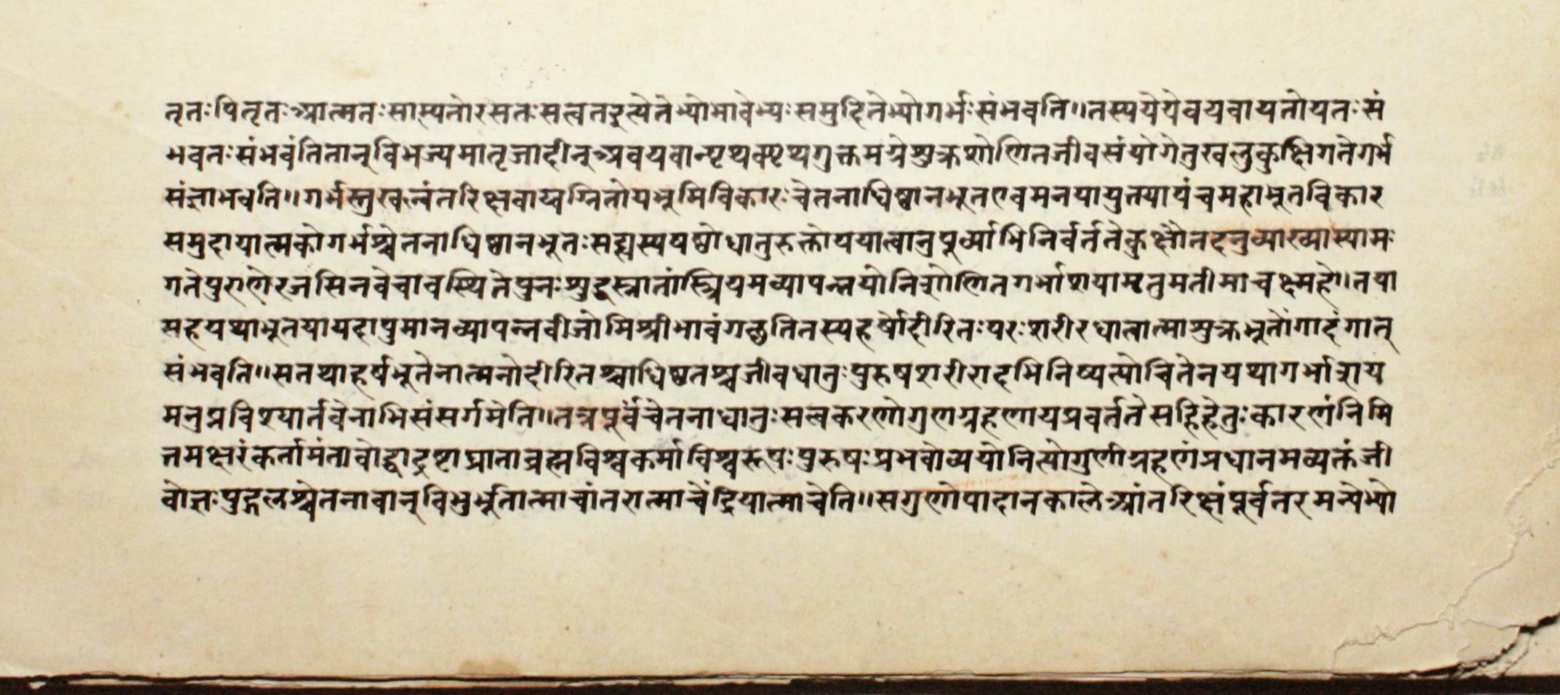 तृतःपितृतःआत्मतःसात्म्यतोरसतःसत्वतइत्येतेभ्योभावेभ्यःसमुदितेभ्योगर्भःसंभवति॥तस्ययेयेवयवायतोयतःसं
भवतःसंभवंतितान्विभज्यमातृजादीन्अवयवान्पृथक्पृथगुक्तमग्रेशुक्रशोणितजीवसंयोगेतुखलुकुक्षिगतेगर्भ
संज्ञाभवति॥गर्भस्तुखल्वंतरिक्षवाय्वग्नितोयभूमिविकारःचेतनाधिष्ठानभूतएवमनयायुतयापंचमहाभूतविकार
समुदायात्मकोगर्भश्चेतनाधिष्ठानभूतःसह्यस्यषष्ठोधातुरुक्तोययात्वानुपूर्व्याभिनिर्वर्ततेकुक्षौतदनुव्याख्यास्यामः
गतेपुराणेरजसिनवेचावस्थितेपुनःशुद्धस्नातांस्त्रियमव्यापन्नयोनिशोणितगर्भाशयामृतुमतीमाचक्ष्महे॥तया
सहयथाभूतयायदापुमानव्यापन्नबीजोमिश्रीभावंगच्छतितस्यहर्षोदीरितःपरःशरीरधात्वात्माशुक्रभूतोंगादंगात्
संभवति॥सतथाहर्षभूतेनात्मनोदीरितश्चाधिष्ठतश्चजीवधातुःपुरुषशरीरादभिनिष्पत्योचितेनपथागर्भाशय
मनुप्रविश्यार्तवेनाभिसंसर्गमेति॥तत्रपूर्वंचेतनाधातुःसत्वकरणोगुणग्रहणायप्रवर्ततेसहिहेतुःकारणंनिमि
तमक्षरंकर्तामंताबोद्धाद्रष्टाघ्राताब्रह्मविश्वकर्माविश्वरूपःपुरुषःप्रभवोव्ययोनित्योगुणीग्रहणंप्रधानमव्यक्तंजी
वोज्ञःपुद्गलश्चेतनावान्विभुर्भूतात्माचांतरात्माचेंद्रियात्माचेति॥सगुणोपादानकालेआंतरिक्षंपूर्वतरमन्येभ्यो